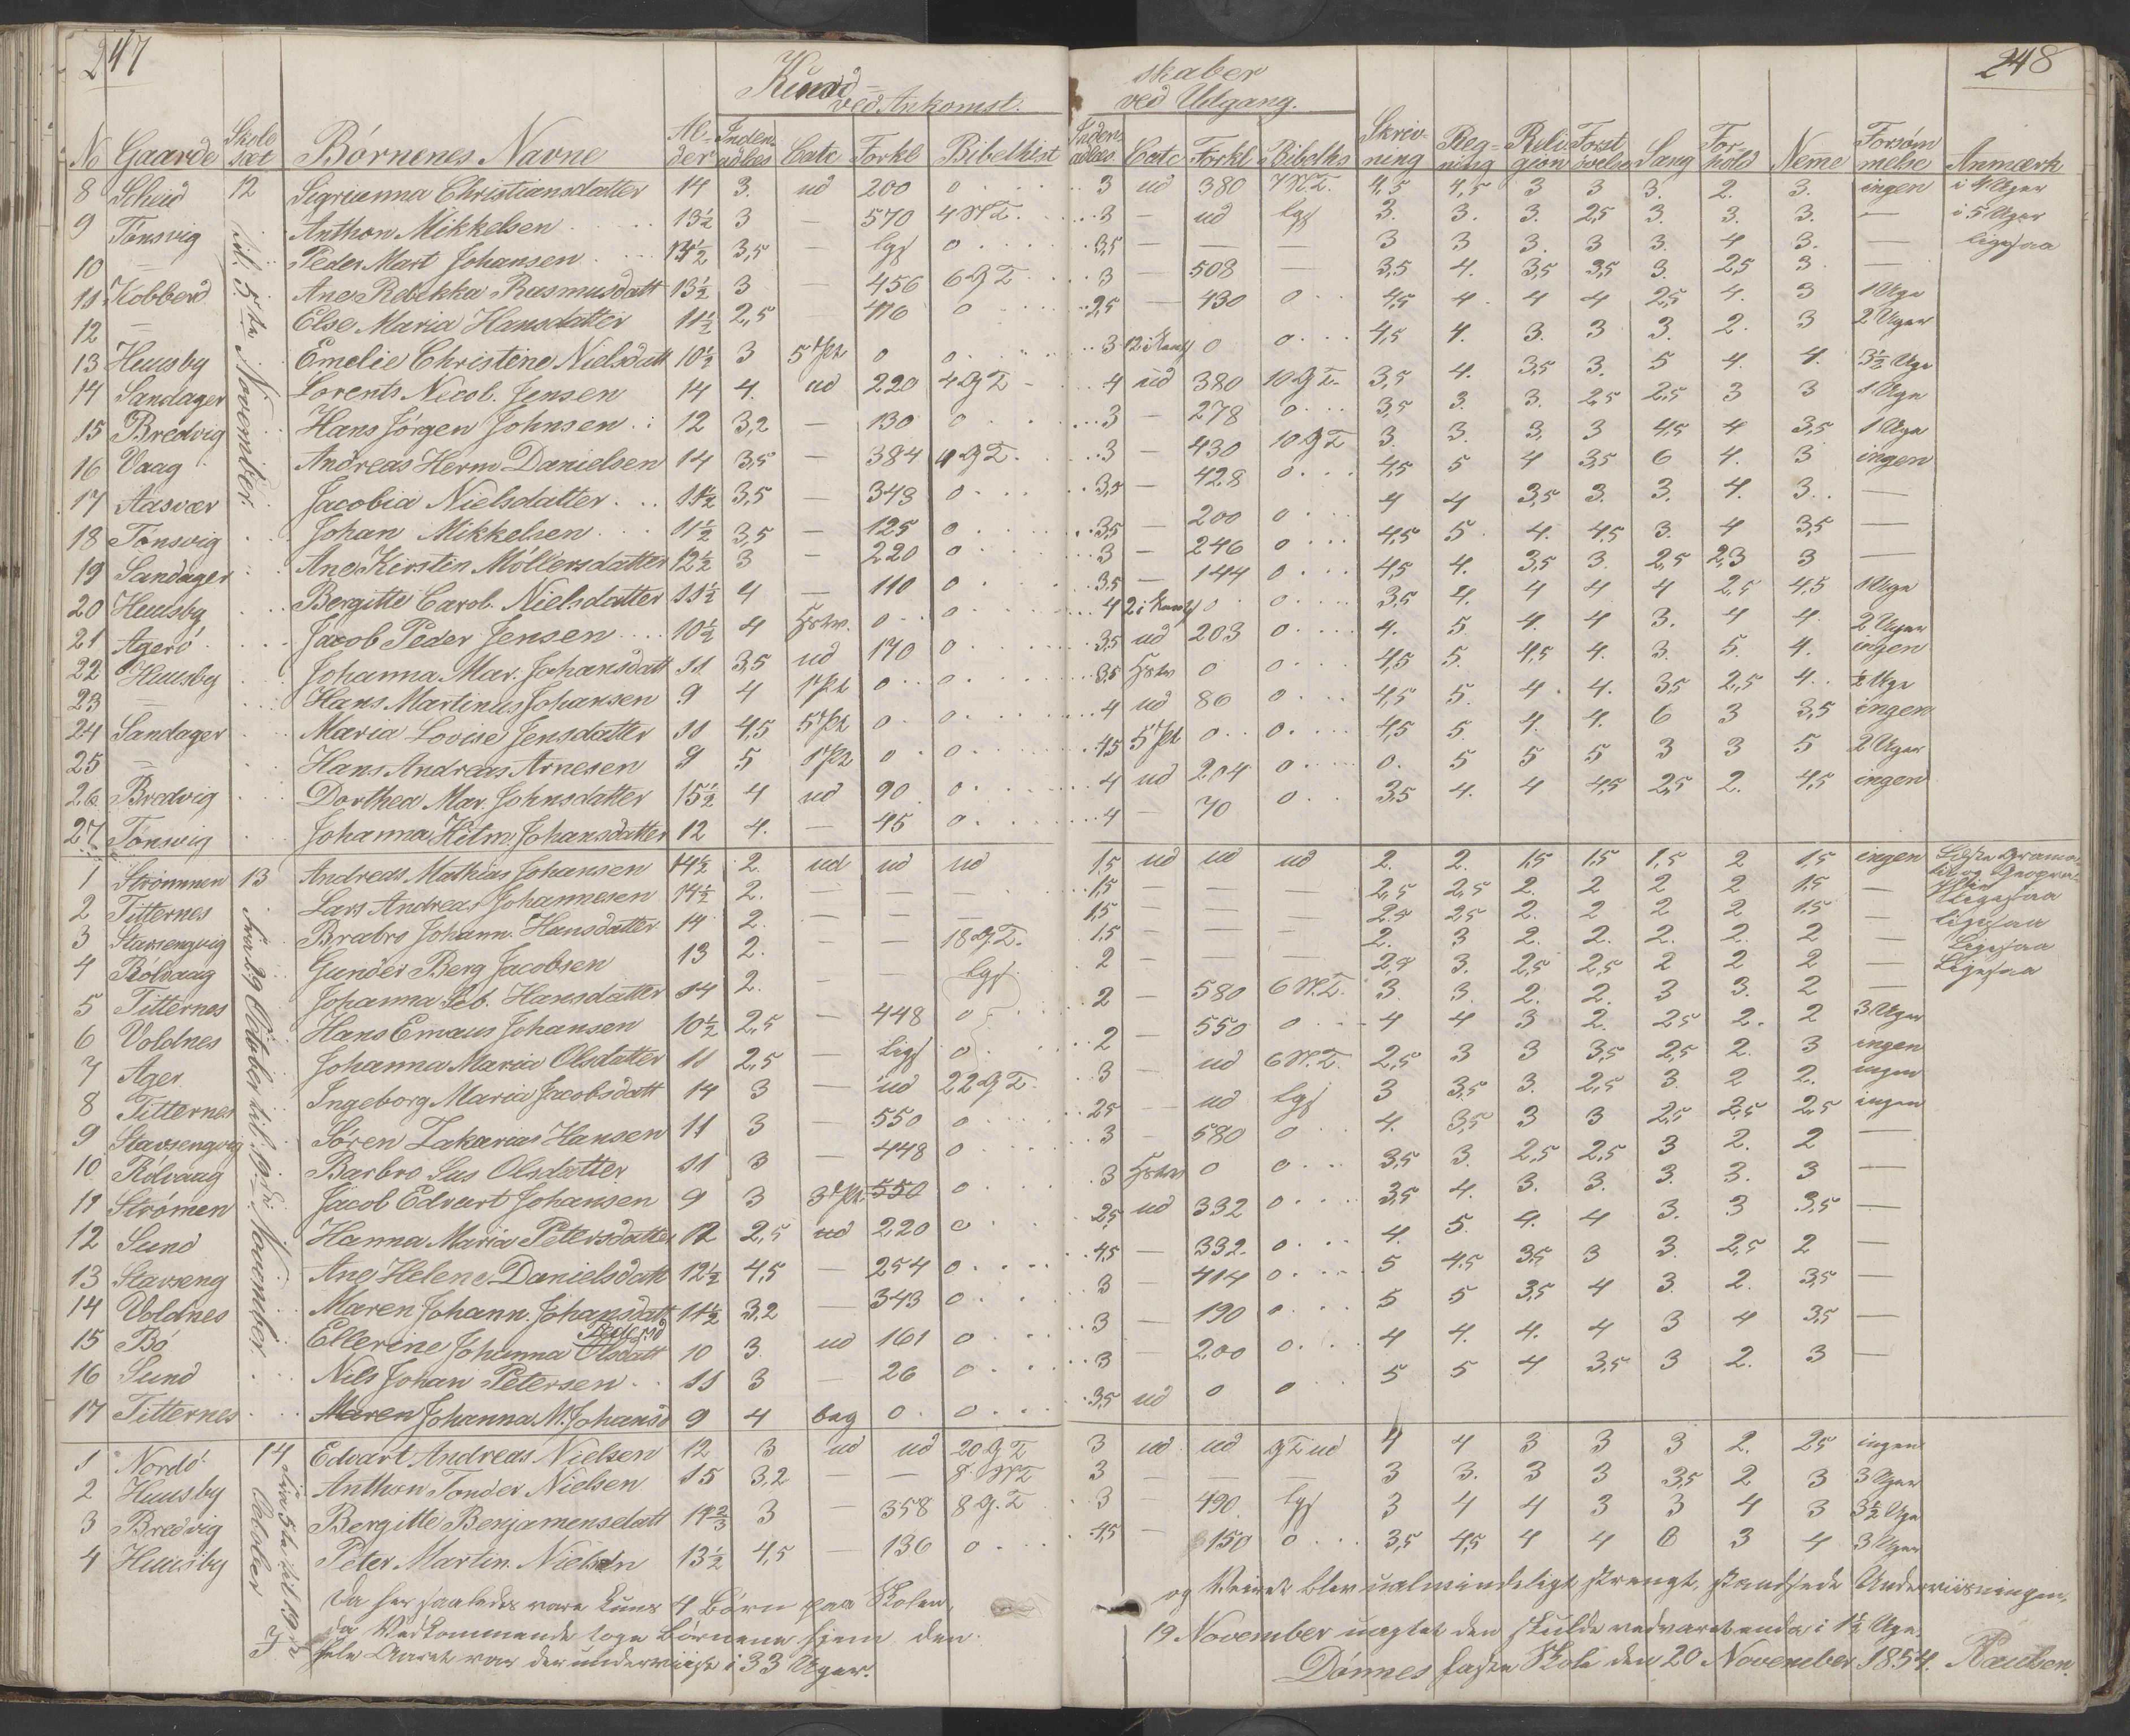 247
248
Kund=
skaber
ved Ankomst.
ved Udgang.
No Gaarde Skole sæt Børnenes Navne Al- der Inden- adlæs Catc Forkl Bibelhist Inden- adlæs Catc Forkl Bibelhs Skriv- ning Reg= ning Reli gion Forst Sang For hold Nemme Forsøm melse Anmærk
8 12 Sigrianna Christiansdatter 14 3. ud 200 0 3 ud 380 7 N.T. 4,5 4,5 3 3 3. 2. 3. ingen i 4 Uger
9 Tonsvig Anthon Mikkelsen 13½ 3 — 570 4 N T. 3 — ud lgs 3. 3. 3. 2,5 3. 3. 3. — i 5 Uger
10 — Peder Mart Johansen 3,5 — lgs 0 3,5 — — — 3 3 3. 3 3. 4 3. — ligesaa
11 Kobberd Ane Rebekka Rasmusdatt 13½ 3 — 456 6 G T 3 — 508 — 3,5 4. 3,5 3,5 3. 2,5 3 —
12 — Else Maria Hansdatter 11½ 2,5 — 416 0 2,5 — 430 0 4,5 4. 4 4 2,5 4. 3 1 Uge
13 Huusby Emelie Christine Nielsdatt 10½ 3 5 Pt 0 0 3 0 0 4,5 4. 3. 3 3. 2. 3 2 Uger
14 Sandager Lorents Nicol. Jensen 14 4. ud 220 4 G T 4 ud 380 10 G T. 3,5 4. 3,5 3. 5 4. 4. 3½ Uge
15 Bredvig Hans Jørgen Johnsen 12 3,2 — 130 0 3 — 278 0 3,5 3. 3. 2,5 2,5 3 3 1 Uge
16 Vaag Andreas Herm Danielsen 14 3,5 — 384 4 G T. 3 — 430 10 G T 3. 3. 3. 3 4,5 4 3,5 1 Uge
17 Aasvær Jacobia Nielsdatter 11½ 3,5 — 343 0 3,5 — 428 0 4,5 5 4 3,5 6 4. 3 ingen
18 Tønsvig Johan Mikkelsen 11½ 3,5 — 125 0 3,5 — 200 0 4 4 3,5 3. 3. 4. 3. —
19 Sandager Ane Kirstin Möllersdatter 12½ 3 — 220 0 3 — 246 0 4,5 5 4. 4,5 3. 4 3,5 —
20 Huusby Bergitte Carol. Nielsdatter 11½ 4 — 110 0 3,5 — 144 0 4,5 4. 3,5 3. 2,5 2,3 3 —
21 Agerö Jacob Peder Jensen 10½ 4 0 0 4 0 0 3,5 4. 4 4 4 2,5 4,5 1 Uge
22 Huusby Johanna Mar. Johansdatt 11 3,5 ud 170 0 3,5 ud 203 0 4. 5. 4. 4 3. 4 4. 2 Uger
23 — Hans Martinus Johansen 9 4 1 Pt 0 0 3,5 0 0 4,5 5. 4,5 4. 3. 5. 4. ingen
24 Sandager Maria Lovise Jensdatter 11 4,5 5 Pt 0 0 4 ud 86 0 4,5 5. 4. 4. 3,5 2,5 4. ½ Uge
25 — Hans Andreas Arnesen 9 5 1 Pt 0 0 4,5 5 Pt 0 0 4,5 5. 4. 4. 6 3 3,5 ingen
26 Bredvig Dorthea Mar. Johnsdatter 15½ 4 ud 90 0 4 ud 204 0 0. 5 5 5 3 3 5 2 Uger
27 Tonsvig Johanna Hilm. Johansdatter 12 4. — 45 0 4 — 70 0 3,5 4. 4 4,5 2,5 2. 4,5 ingen
til 5te November.
1 Strømmen 13 Andreas Mathias Johansen 14½ 2. ud ud ud 1,5 ud ud ud 2. 2. 1,5 1,5 1,5 2 1,5 ingen
2 Titternes Lars Andreas Johannesen 14½ 2. — — — 1,5 — — — 2,5 2,5 2. 2 2 2 1,5 — Ligesaa
3 Stavsengvig Brabro Johann. Hansdatter 14 2. — — — 1,5 — — — 2,5 2. 2 2 2 1,5 — ligesaa
4 Rölvaag Gunder Berg Jacobsen 13 2. — — 18 G T. 1,5 — — — 2. 3 2. 2. 2. 2. 2 — Ligesaa
5 Titternes Johanna Seb. Hansdatter 14 2. — lgs 2 — — — 3. 2,5 2,5 2 2 2 — Ligesaa
6 Voldnes Hans Emaus Johansen 10½ 2,5 — 448 0 2 — 580 6 N.T. 3. 3. 2. 2. 3 3. 2 —
7 Ager Johanna Maria Olsdatter 11 2,5 — ligs 0 2 — 550 0 4 4 3 2. 2,5 2. 2 3 Uger
8 Titternes Ingeborg Maria Jacobsdatt 14 3 — ud 22 G T. 3 — ud 6 N.T. 2,5 3 3 3,5 2,5 2. 3 ingen
9 Stavsengvig Sören Zakarias Hansen 11 3 — 550 0 2,5 — ud lgs 3 3,5 3. 2,5 3. 2 2. ingen
10 Rölvaag Barbro Sus Olsdatter 11 3 — 448 0 3 — 580 0 4. 3,5 3 3 2,5 2,5 2,5 ingen
11 Strømen Jacob Edvart Johansen 9 3 3 Pt. 550 0 3 0 0 3,5 3. 2,5 2,5 3 2. 2 —
12 Sund Hanna Maria Petersdatter 12 2,5 ud 220 0 2,5 ud 332 0 3,5 4. 3. 3. 3. 3. 3 —
13 Stavseng Ane Helene Danielsdatt 12½ 4,5 — 254 0 4,5 — 332. 0 4. 5. 4. 4 3. 3 3,5 —
14 Voldnes Maren Johann. Johansdatt 11½ 3,2 — 343 0 3 — 414 0 5 4,5 3,5 3 3. 2,5 2 —
15 Bö Ellerine Johanna Olsdatt 10 3. ud 161 0 3 — 190 0 5 5 3,5 4 3. 2. 3,5 —
16 Sund Nils Johan Petersen 11 3 — 26 0 3 — 200 0 4 4. 4. 4 3 4 3,5 —
17 Titternes Maren Johanna M. Johansd 9 4 bag 0 0 3,5 ud 0 0 5 5 4 3,5 3 2. 3 —
fra 29 October til 19de November.
1 Nordö 14 Edvart Andreas Nielsen 12 3 ud ud 20 G T 3 ud ud G T ud 4 4 3 3 3 2. 2,5 ingen
2 Huusby Anthon Tonder Nielsen 15 3,2 — 8 N T 3 — — — 3 3. 3 3 3,5 2 3 3 Uger
3 Bredvig Bergitte Benjamensdatt 14⅔ 3 — 358 8 G. T 3 — 490. lgs 3 4 4 3 3 4 3 3½ Uge
4 Huusby Peter Martin. Nielsen 13½ 4,5 — 136 0 4,5 — 150 0 3,5 4,5 4 4 6 3 4 3 Uger
Da her saaledes vare kuns 4 Børn paa Skolen,
og Veiret blev ualmindeligt strengt, standsede Underviisningen,
da Vedkommende toge Børnene hjem den
19 November uagtet den skulde vedvaret enda i 1½ Uge.
hele Aaret var der underviist i 33 Uger.
Dønnes faste Skole den 20 November 1854.